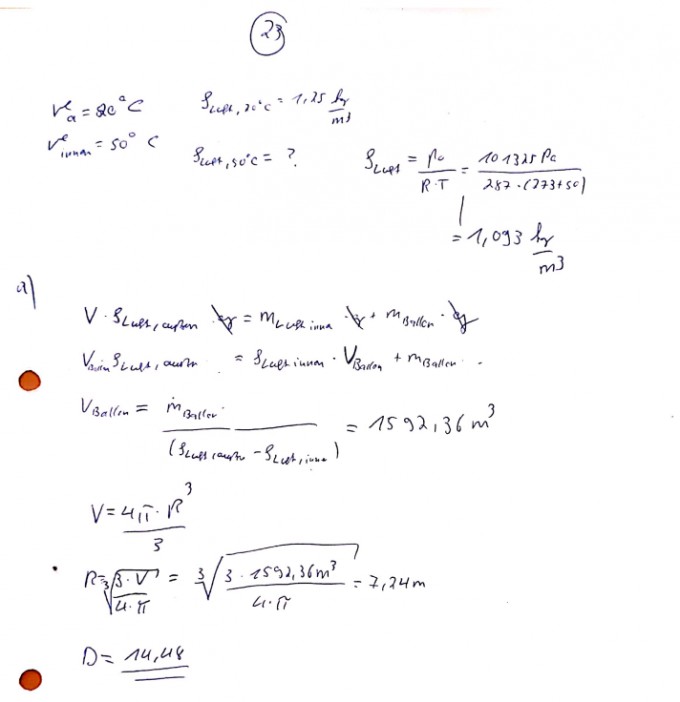 23
ϑa = 20°C ρLuft, 20°C = 1,25 kg/m3
ϑinnen = 50° C ρLuft, 50°C = ? ρLuft = p0/(R·T) = 101325 Pa/(287·(273+50))
= 1,093 kg/m3
a)
V · ρLuft, außen · g = mLuft innen · g + mBallon · g
VBallon ρLuft, außen = ρLuft innen · VBallon + mBallon
VBallon = mBallon/(ρLuft, außen - ρLuft, innen) = 1592,36 m³
V = 4π·R³/3
R = ³√(3·V/(4·π)) = ³√(3·1592,36m³/(4·π)) = 7,24 m
D = 14,48